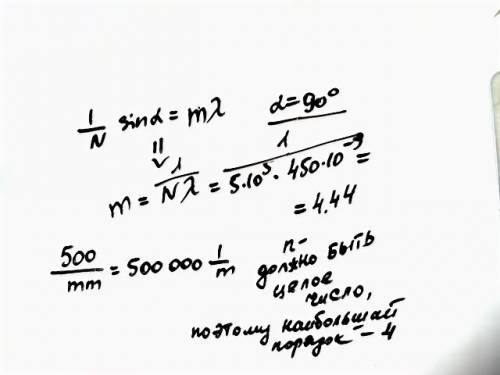 1/N sinα = mλ α=90°
⇓
m = 1/Nλ = 1/5·10⁵·450·10⁻⁹ =
= 4.44
500/mm = 500 000 1/m
n-
должно быть
целое
число,
поэтому наибольшай
порядок - 4